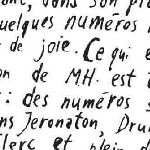 dans son pr
quelques numéros
de joie. Ce qui e
on de MH. est
: des numéros s
ns Jeronaton, Dru
lerc et plein d